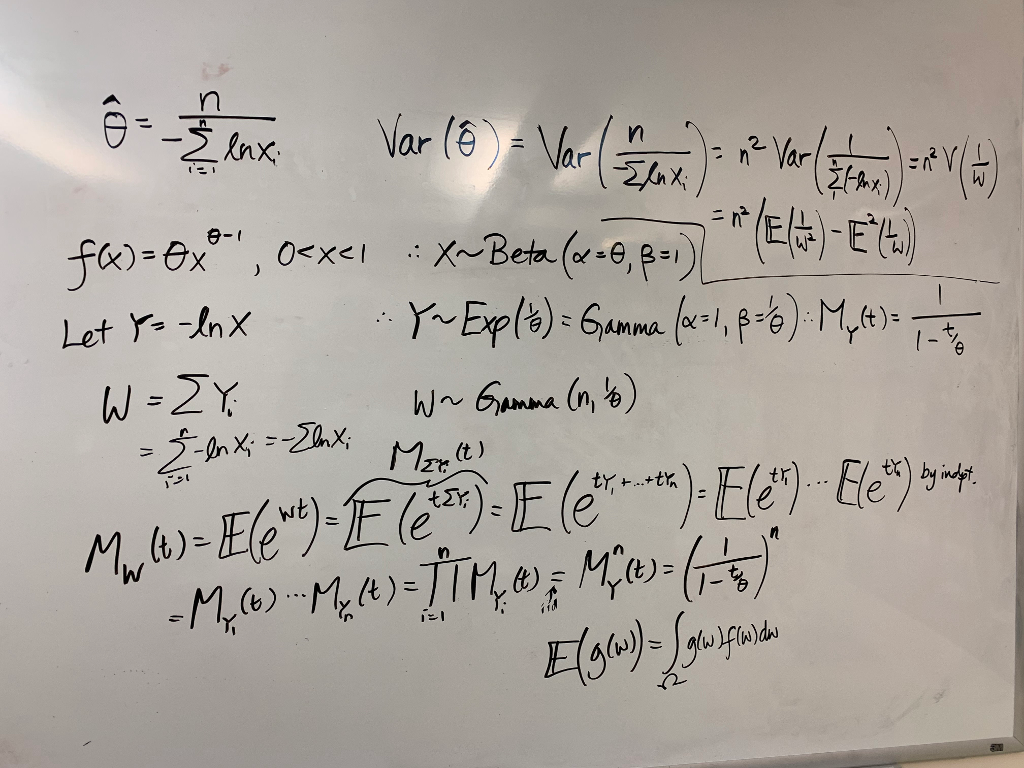 θ̂ = n / (-∑_{i=1}^{n} ln x_i)
Var(θ̂) = Var(n / (-∑ ln x_i)) = n² Var(1 / (∑_{1}^{n} (-ln x_i))) = n² V(1/W)
= n² (𝔼(1/W²) - 𝔼²(1/W))
f(x) = θx^{θ-1}, 0 < x < 1 ∴ X ~ Beta(α = θ, β = 1)
Let Y = -ln X ∴ Y ~ Exp(1/θ) = Gamma(α = 1, β = 1/θ) ∴ M_Y(t) = 1 / (1 - t/θ)
W = ∑ Y_i W ~ Gamma(n, 1/θ)
= ∑_{i=1}^{n} -ln X_i = -∑ ln X_i
M_{∑Y_i}(t)
M_W(t) = 𝔼(e^{Wt}) = 𝔼(e^{t∑Y_i}) = 𝔼(e^{tY_1 + ... + tY_n}) = 𝔼(e^{tY_1}) ... 𝔼(e^{tY_n}) by indpt.
= M_{Y_1}(t) ... M_{Y_n}(t) = ∏_{i=1}^{n} M_{Y_i}(t) = M_Y^n(t) = (1 / (1 - t/θ))^n
↑ iid
𝔼(g(w)) = ∫_Ω g(w) f(w) dw